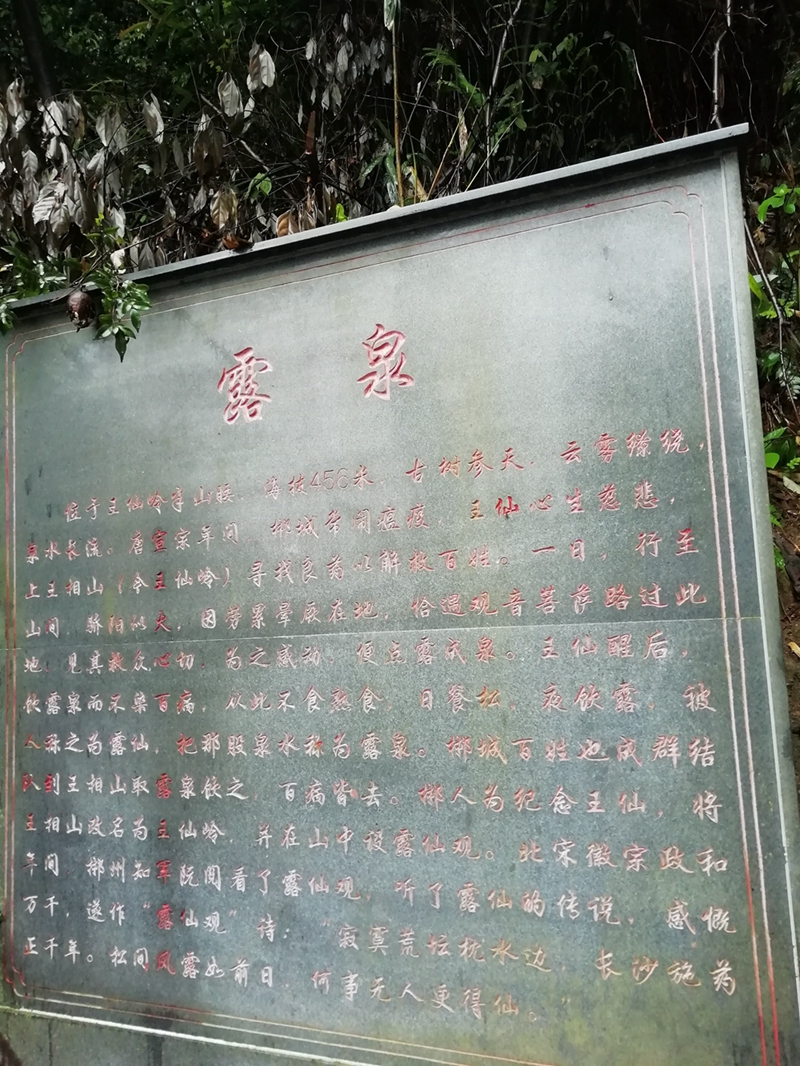 露泉
位于王仙岭半山腰，海拔456米，古树参天，云雾缭绕，
泉水长流。唐宣宗年间，郴城常闹瘟疫，王仙心生慈悲，
上王相山（今王仙岭）寻找良药以解救百姓。一日，行至
山间，骄阳似火，因劳累晕厥在地，恰遇观音菩萨路过此
地，见其救众心切，为之感动，便点露成泉。王仙醒后，
饮露泉而不染百病，从此不食熟食，日餐松，夜饮露，被
人称之为露仙，把那股泉水称为露泉。郴城百姓也成群结
队到王相山取露泉饮之，百病皆去。郴人为纪念王仙，将
王相山改名为王仙岭，并在山中设露仙观。北宋徽宗政和
年间，郴州知军阮阅看了露仙观，听了露仙的传说，感慨
万千，遂作“露仙观”诗：“寂寞荒坛枕水边，长沙施药
正千年。松间风露如前日，何事无人更得仙。”